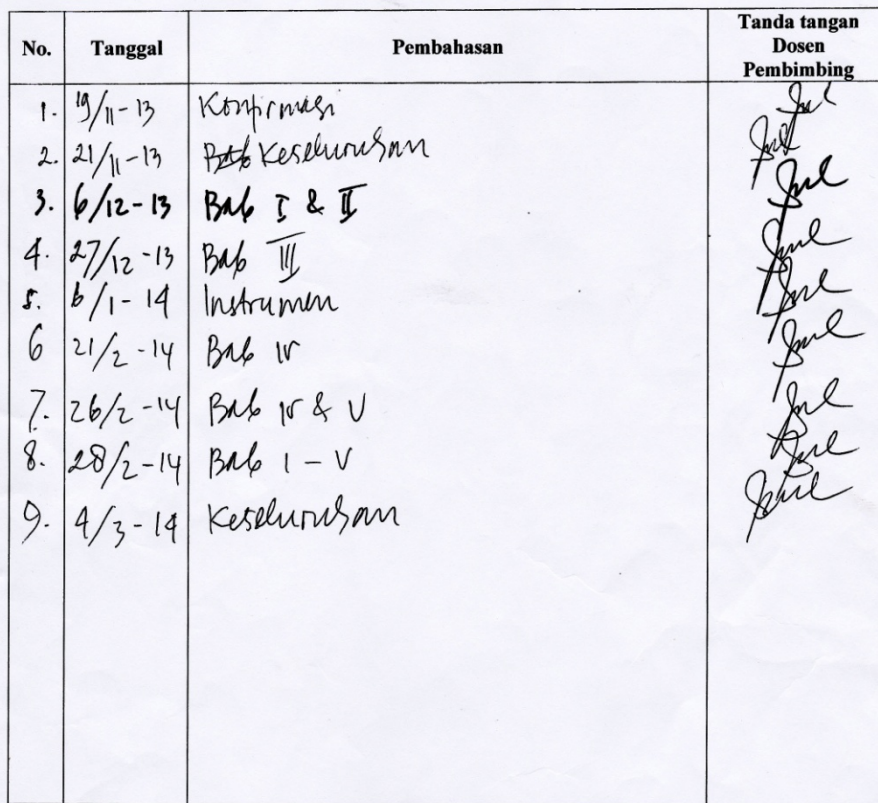 No. Tanggal Pembahasan Tanda tangan Dosen Pembimbing
1. 19/11-13 Konfirmasi
2. 21/11-13 Keseluruhan
3. 6/12-13 Bab I & II
4. 27/12-13 Bab III
5. 6/1-14 Instrumen
6 21/2-14 Bab IV
7. 26/2-14 Bab IV & V
8. 28/2-14 Bab I - V
9. 4/3-14 Keseluruhan